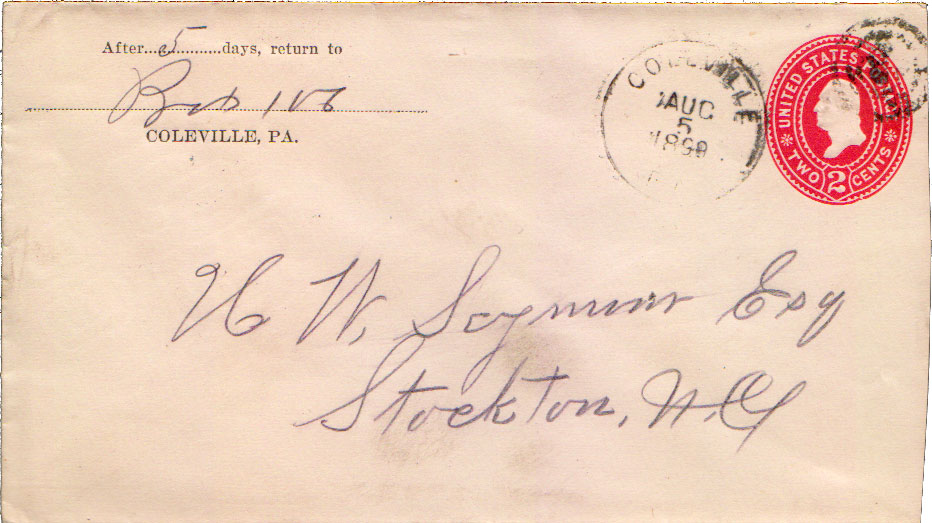 After...5...........days, return to
Box 106
COLEVILLE, PA.
COLEVILLE
AUG
5
1899
UNITED STATES
TWO 2 CENTS
H W, Seymour Esq
Stockton, N, Y